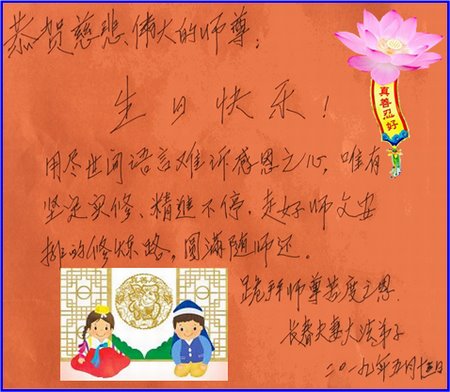 恭贺慈悲伟大的师尊：
生日快乐！
真善忍好
用尽世间语言难诉感恩之心，唯有
坚定实修、精進不停，走好师父安
排的修炼路，圆满随师还。
跪拜师尊苦度之恩
长春夫妻大法弟子
二〇一九年五月十三日